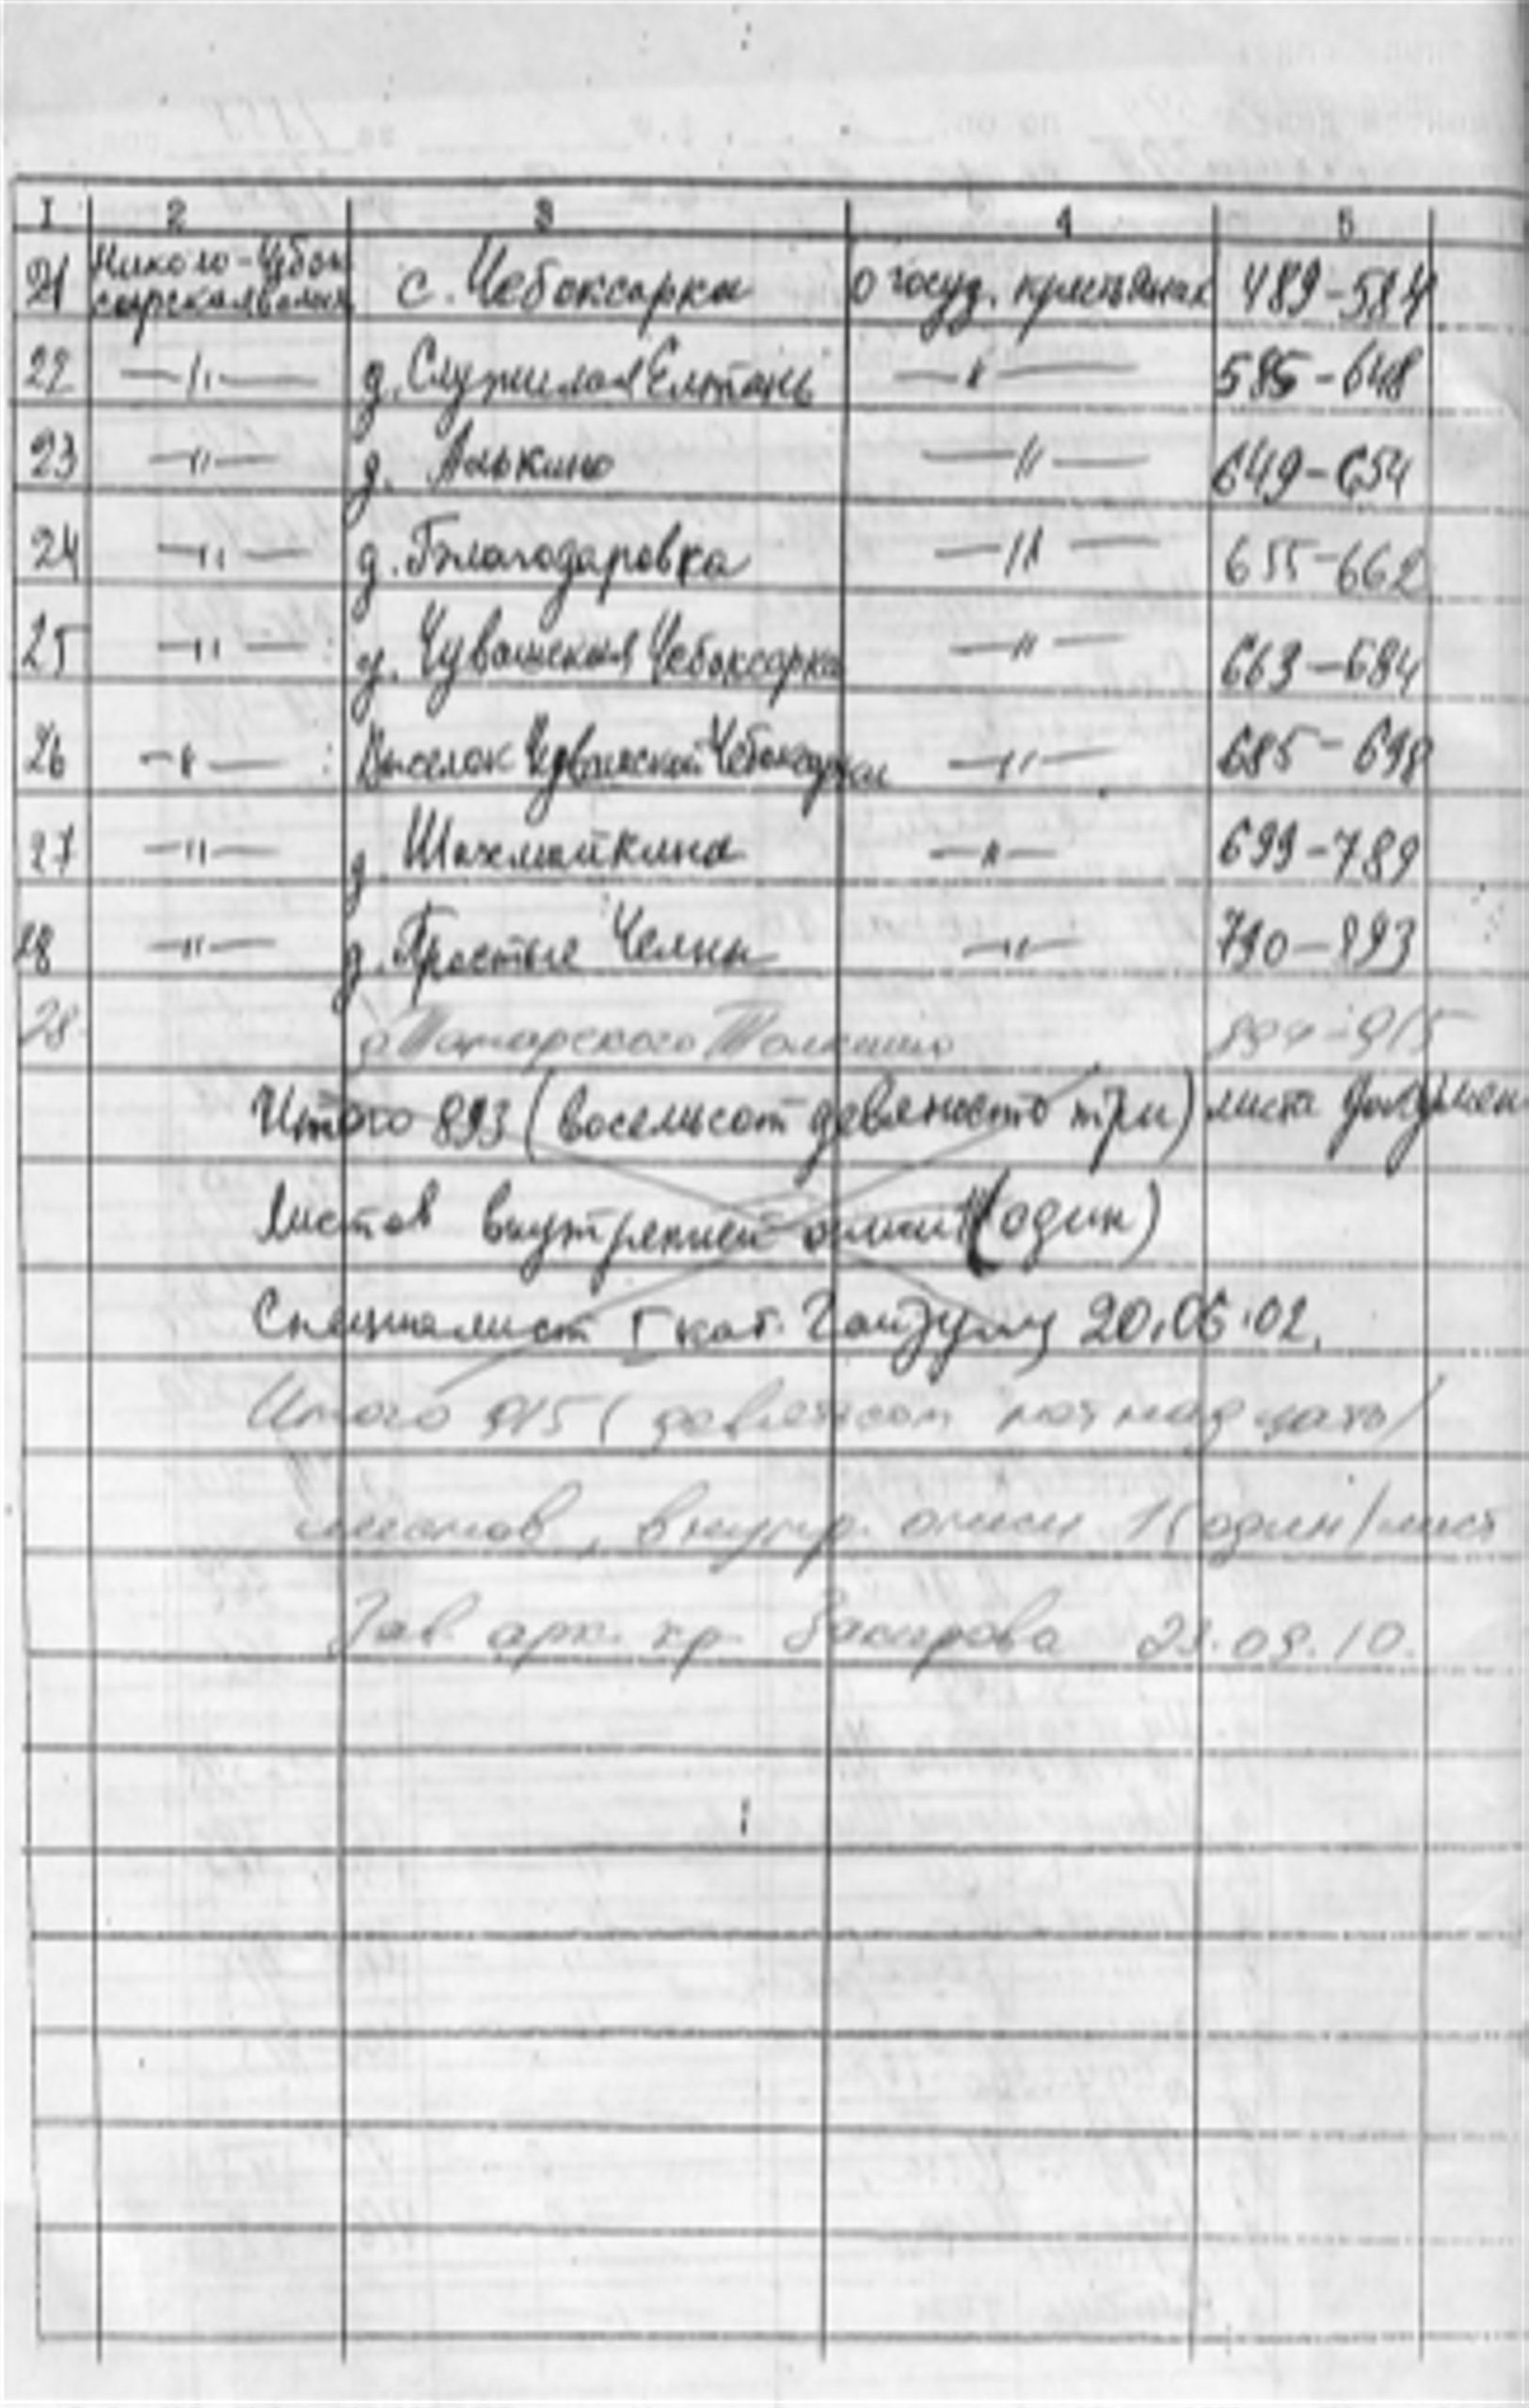 I 2 3 4 5
21 Николо-Чебок сарская волость с. Чебоксарка о госуд. крестьянах 489-584
22 —"— д. Служилая Елтань —"— 585-648
23 —"— д. Алькино —"— 649-654
24 —"— д. Благодаровка —"— 655-662
25 —"— д. Чувашская Чебоксарка —"— 663-684
26 —"— Выселок Чувашской Чебоксарки —"— 685-698
27 —"— д. Шахмайкина —"— 699-789
28 —"— д. Простые Челны —"— 790-893
28 д Татарского Толкишо 894-915
Итого 893 (восемьсот девяносто три) листа докумен
Листов внутренней описи 1 (один)
Специалист I кат. 20.06.02.
Итого 915 (девятьсот пятнадцать)
листов, внутр. описи 1 (один) лист
Зав. арх. хр. Закирова 23.09.10.